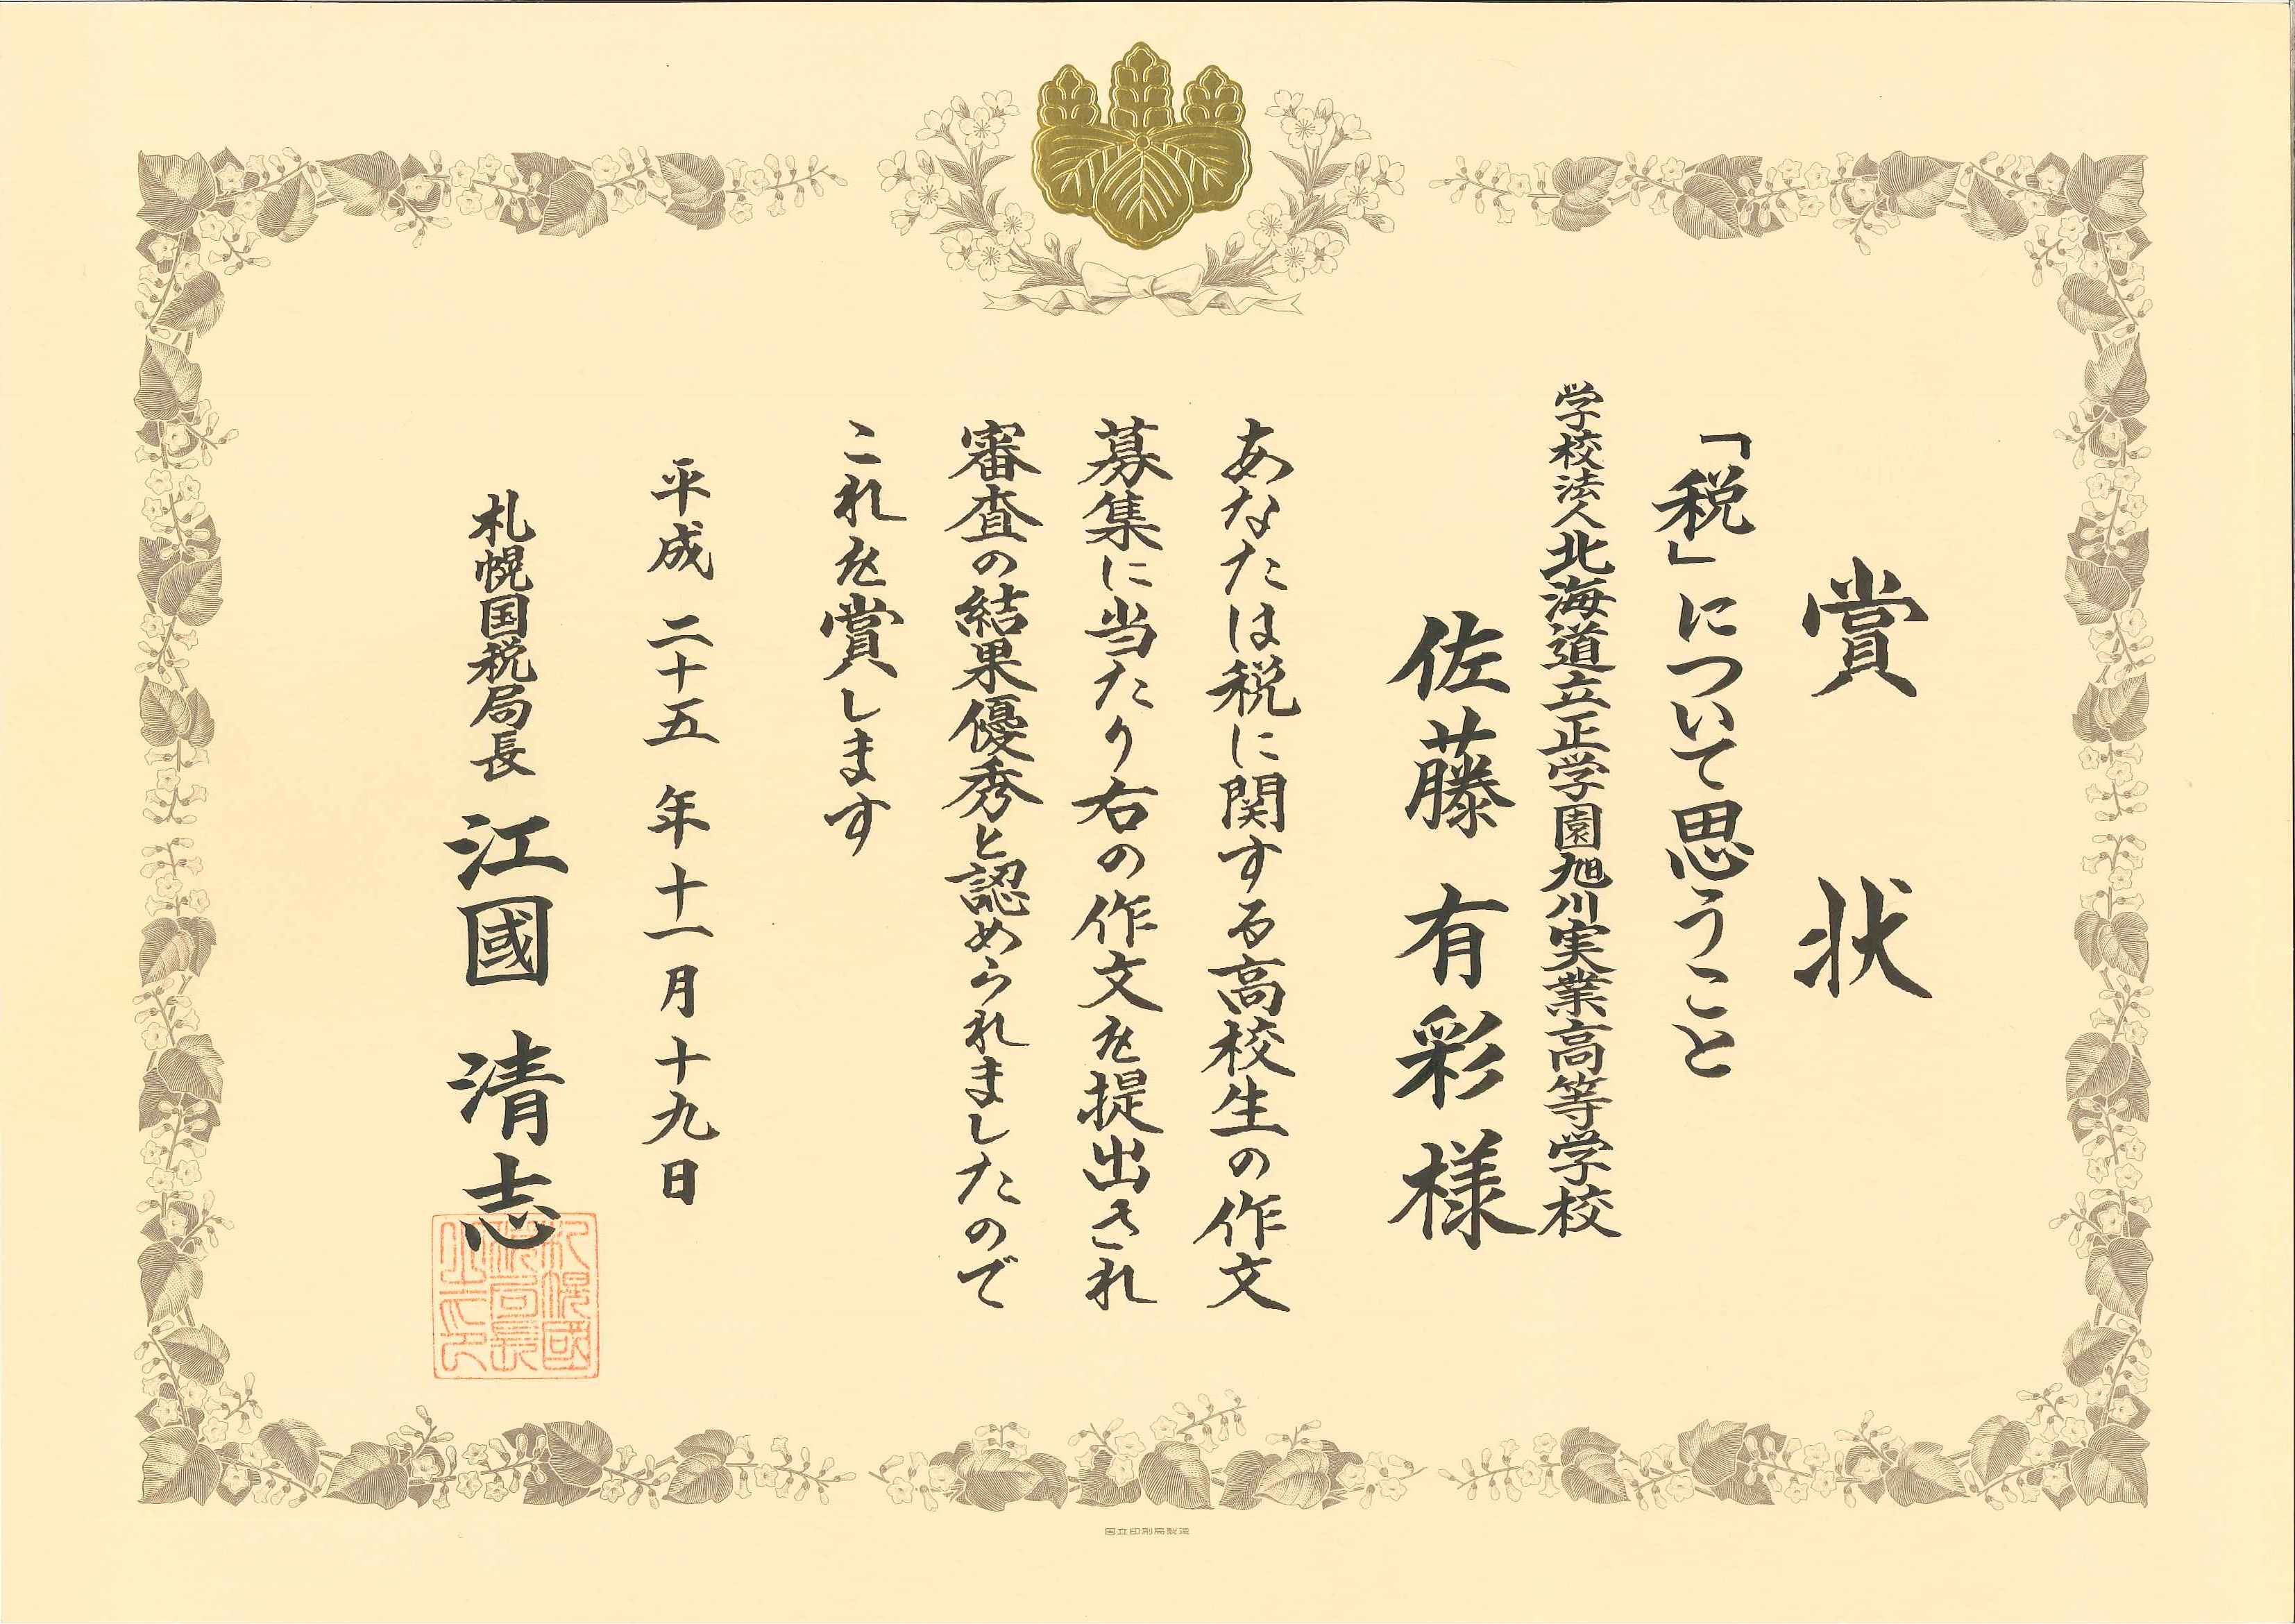 賞状
「税」について思うこと
学校法人北海道立正学園旭川実業高等学校
佐藤有彩様
あなたは税に関する高校生の作文
募集に当たり右の作文を提出され
審査の結果優秀と認められましたので
これを賞します
平成二十五年十一月十九日
札幌国税局長 江國清志
札幌國税局長之印
国立印刷局製造